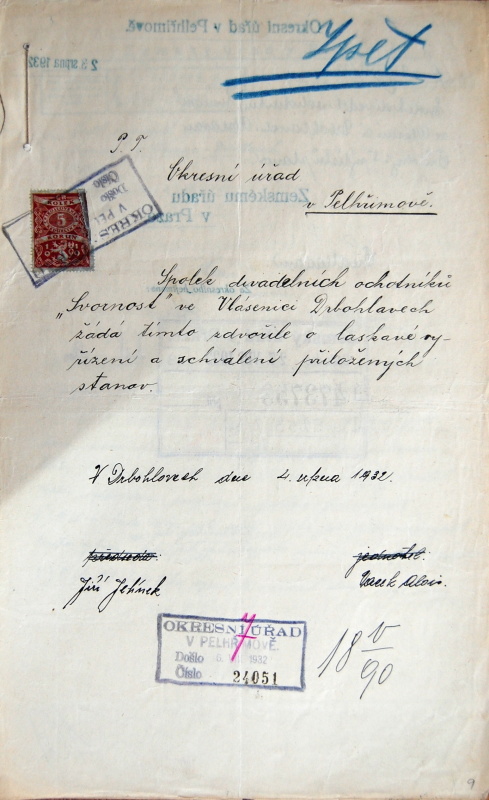 Zpět
P. T.
Okresní úřad
v Pelhřimově.
KOLEK
5
Spolek divadelních ochotníků
„Svornost" ve Vlásenici Drbohlavech
žádá tímto zdvořile o laskavé vy-
řízení a schválení přiložených
stanov.
V Drbohlavech dne 4. srpna 1932.
předseda: jednatel:
Jiří Jelínek Vacek Alois.
OKRESNÍ ÚŘAD
V PELHŘIMOVĚ.
Došlo 1932
Číslo 24051
7
18 V/90
9
Okresní úřad v Pelhřimově.
23 srpna 1932
Zemskému úřadu
v Praze
OKRES
V PEL
Došlo
Číslo